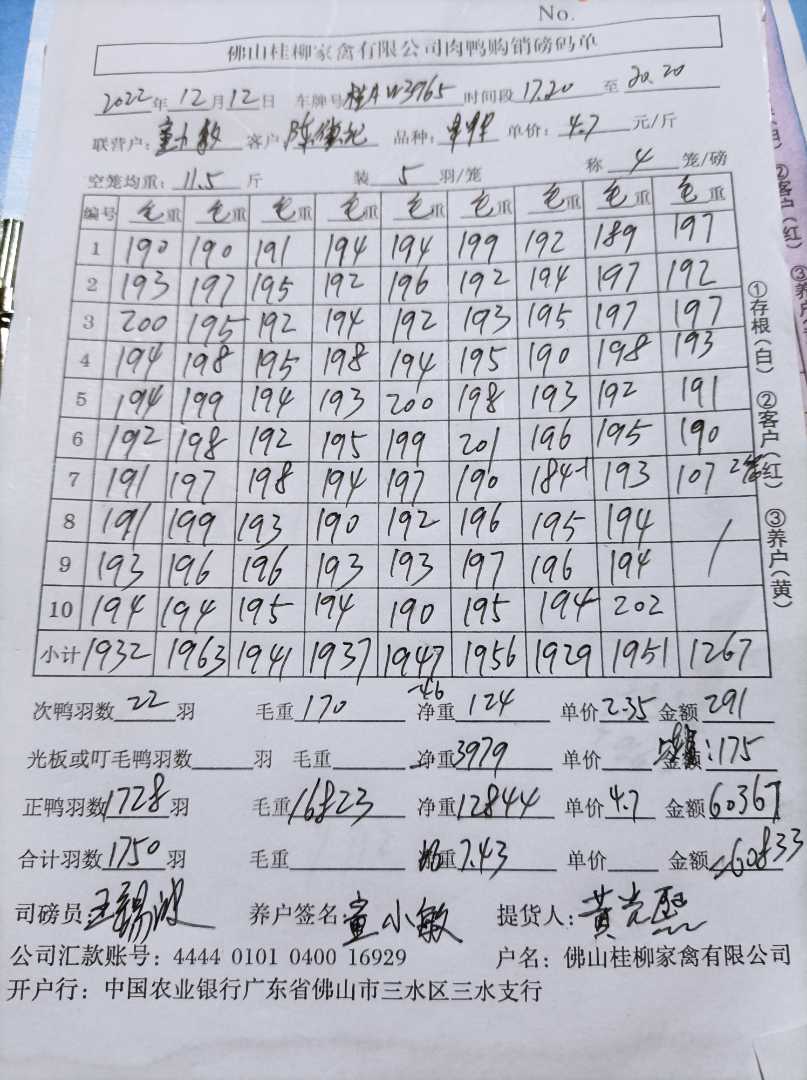 No.
佛山桂柳家禽有限公司肉鸭购销磅码单
2022年12月12日 车牌号桂AW3965 时间段17.20至20.20
联营户：童小敏 客户 品种： 单价：4.7元/斤
空笼均重：11.5斤 装5羽/笼 称4笼/磅
编号 毛重 毛重 毛重 毛重 毛重 毛重 毛重 毛重 毛重
1 190 190 191 194 194 199 192 189 197
2 193 197 195 192 196 192 194 197 192
3 200 195 192 194 192 193 195 197 197
4 194 198 195 198 194 195 190 198 193
5 194 199 194 193 200 198 193 192 191
6 192 198 192 195 199 201 196 195 190
7 191 197 198 194 197 190 184-1 193 107 2笼
8 191 199 193 190 192 196 195 194 /
9 193 196 196 193 193 197 196 194
10 194 194 195 194 190 195 194 202
小计 1932 1963 1941 1937 1947 1956 1929 1951 1267
-46
次鸭羽数22羽 毛重170 净重124 单价2.35 金额291
光板或叮毛鸭羽数 羽 毛重 净重3979 单价 金额：175
正鸭羽数1728羽 毛重16823 净重12844 单价4.7 金额60367
合计羽数1750羽 毛重 重7.43 单价 金额60833
司磅员：王锡波 养户签名：童小敏 提货人：黄光
公司汇款账号：4444 0101 0400 16929 户名：佛山桂柳家禽有限公司
开户行：中国农业银行广东省佛山市三水区三水支行
①存根（白） ②客户（红） ③养户（黄）
②客户（红）
③养户